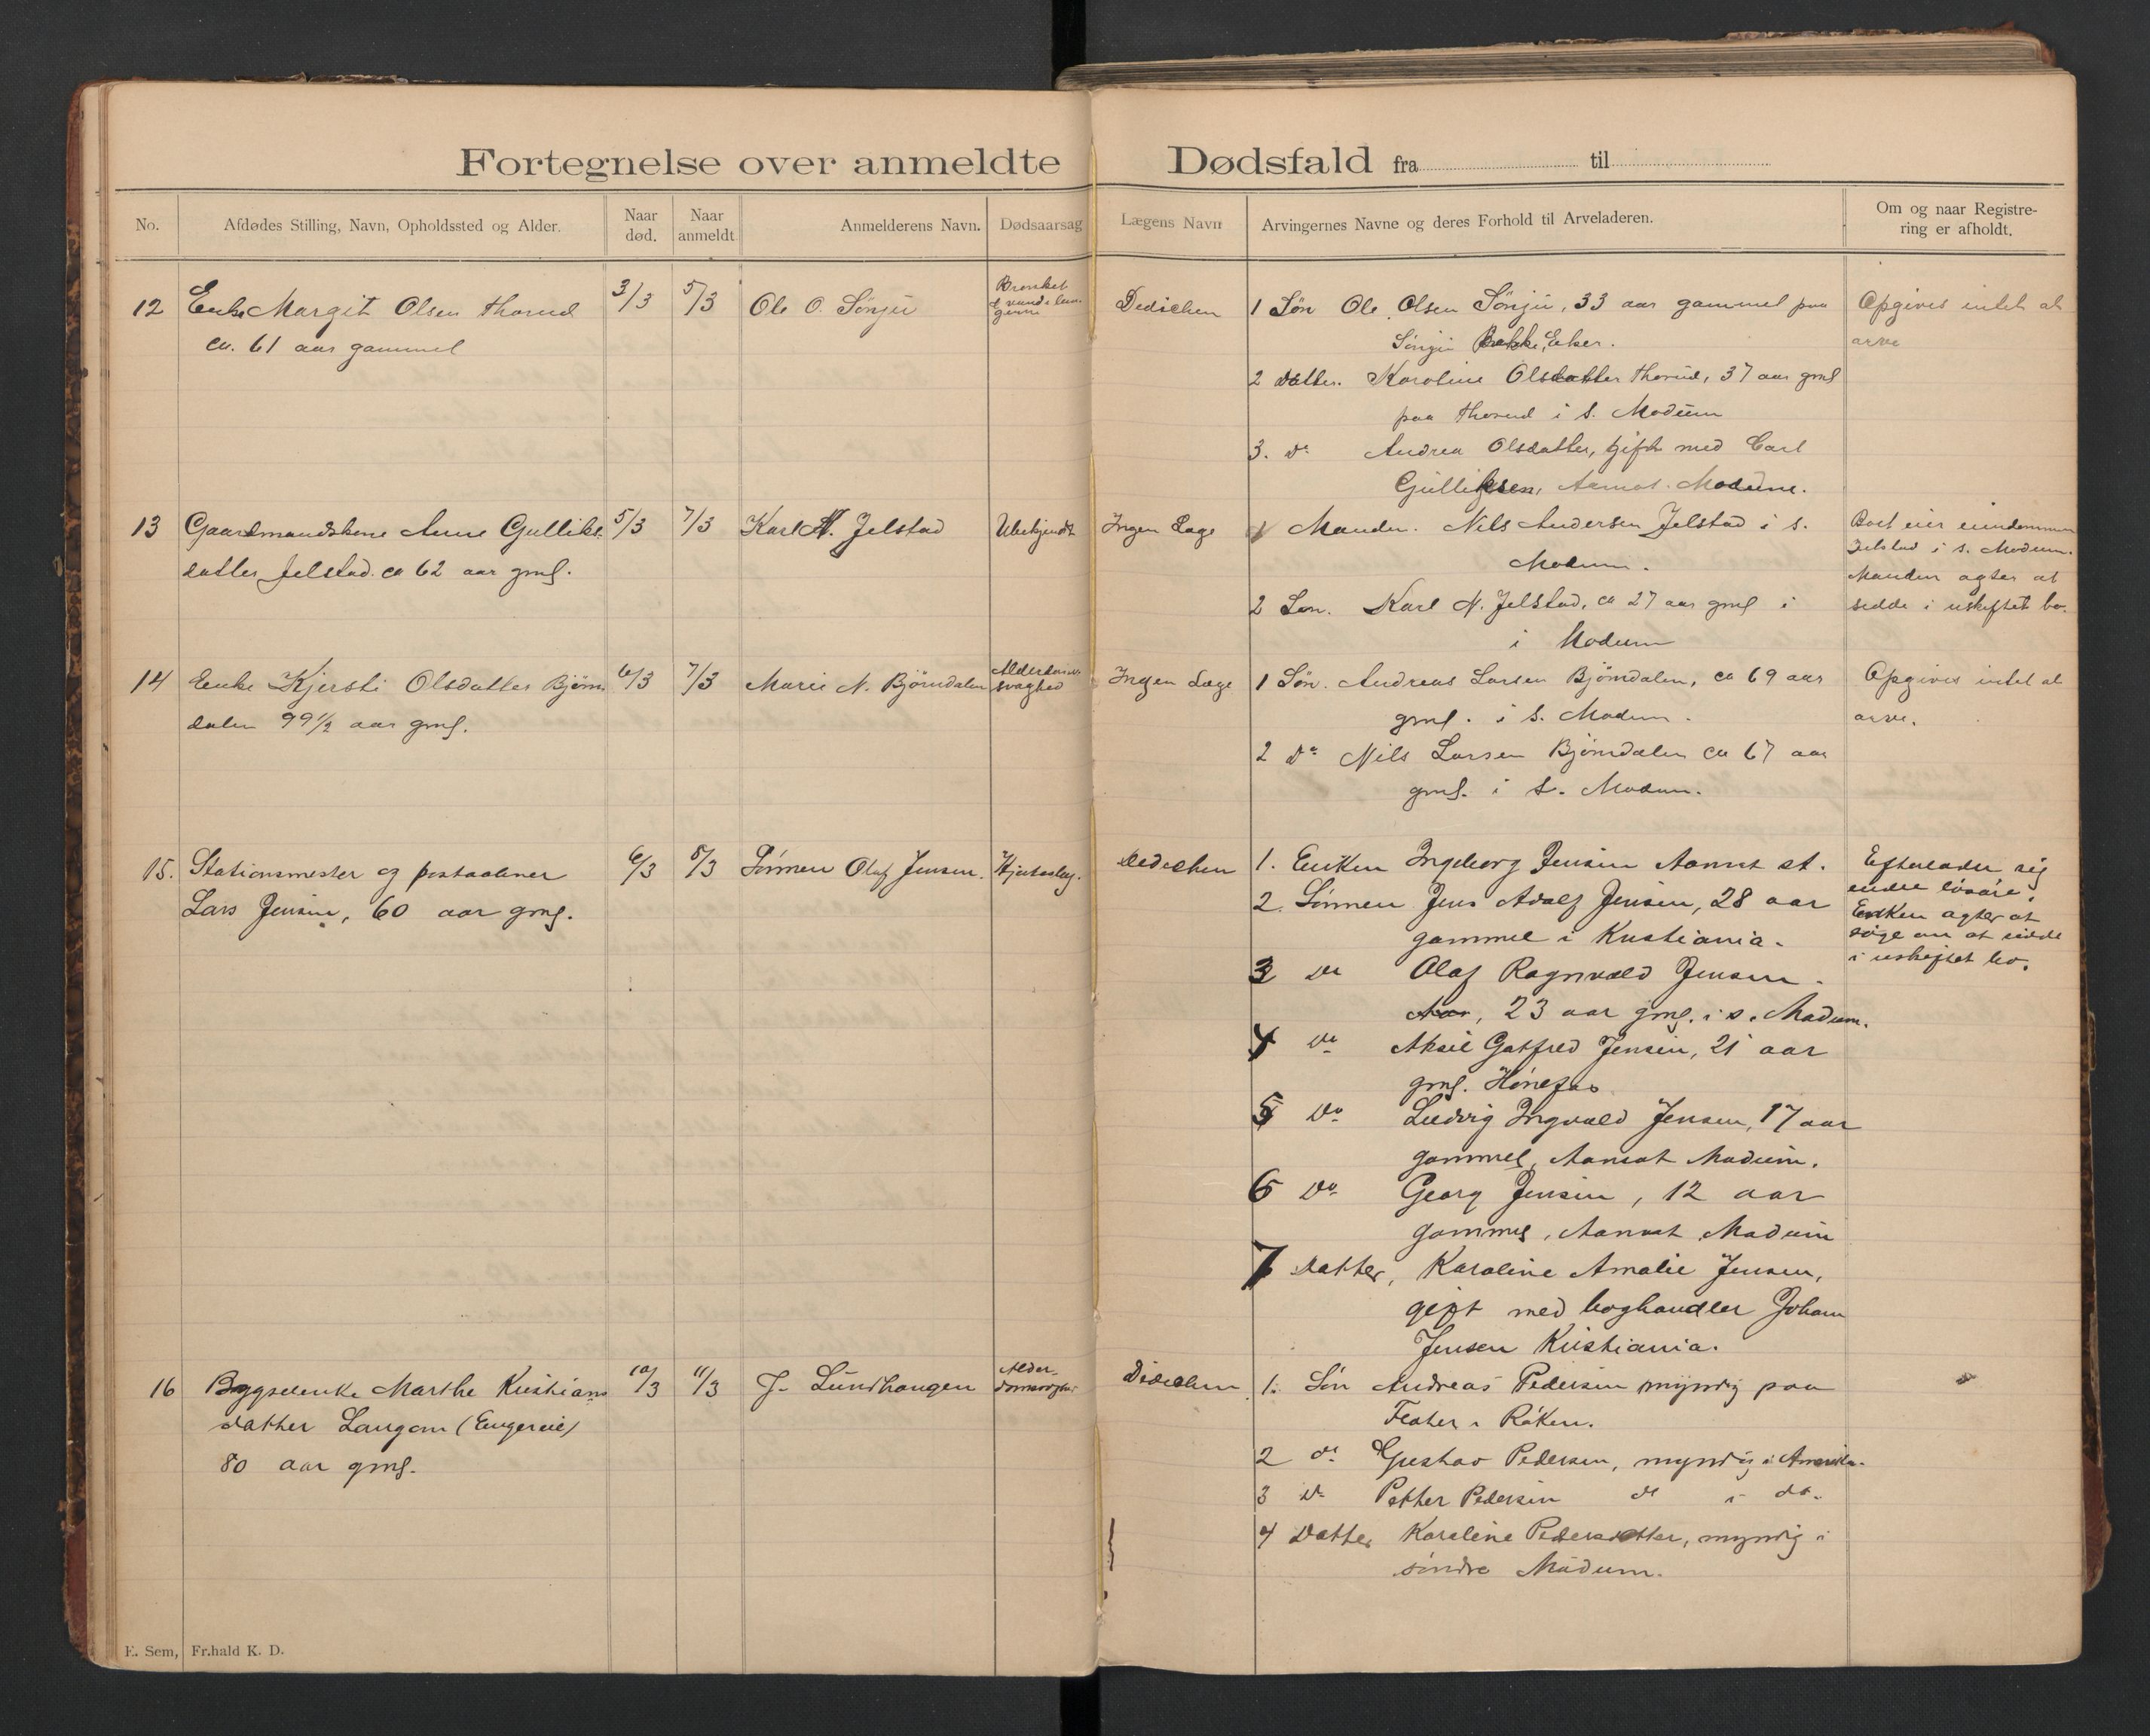 Fortegnelse over anmeldte Dødsfald fra til
No.
Afdødes Stilling, Navn, Opholdssted og Alder.
Naar død.
Naar anmeldt
Anmelderens Navn.
Dødsaarsag
Lægens Navn
Arvingernes Navne og deres Forhold til Arveladeren.
Om og naar Registre-
ring er afholdt.
12 Enke Margit Olsen Thorud
ca. 61 aar gammel
3/3
5/3
Ole O. Sönju
Dedichen
1 Søn Ole Olsen Sönju, 33 aar gammel paa
Sönju Eker.
2 datter. Karoline Olsdatter Thorud, 37 aar gml
paa Thorud i S. Modum
3. do Andrea Olsdatter, gift med Carl
Gulliksen, Aamot. Modum.
Opgives intet at
arve
13 Gaardmandskone Anne Golliks
datter Jelstad. ca 62 aar gml.
5/3
7/3
Karl N. Jelstad
Ubekjendt
Ingen Læge
1 Manden. Nils Andersen Jelstad i S.
Modum.
2 Søn. Karl N. Jelstad, ca 27 aar gml i
i Modum
Boet eier eiendommen
Jelstad i S. Modum.
Manden agter at
sidde i uskiftet bo.
14 Enke Kjersti Olsdatter Bjørn
dalen 99 1/2 aar gml.
6/3
7/3
Marie N. Björndalen
Alderdoms
svaghed
Ingen Læge
1 Søn. Andreas Larsen Björndalen, ca 69 aar
gml. i S. Modum.
2 do Nils Larsen Björndalen ca 67 aar
gml. i S. Modum.
Opgives intet at
arve.
15. Stationsmester og postaabner
Lars Jensen, 60 aar gml.
6/3
8/3
Sönnen Olaf Jensen.
Hjerteslag.
Dedichen
1. Enken Ingeborg Jensen Aamot st.
2. Sönnen Jens Adolf Jensen, 28 aar
gammel i Kristiania.
3 do Olaf Ragnvald Jensen
23 aar gml. i s. Modum.
4 do Aksel Gotfred Jensen, 21 aar
gml. Hönefos
5 do Ludvig Ingvald Jensen, 17 aar
gammel, Aamot Modum.
6 do Georg Jensen, 12 aar
gammel, Aamot Modum
7 Datter, Karoline Amalie Jensen,
gift med boghandler Johan
Jensen Kristiania.
Efterlader sig
endel lösöre.
Enken agter at
söge om at sidde
i uskiftet bo.
16 Bygselenke Marthe Kristians
datter Langom (Engereie)
80 aar gml.
10/3
11/3
J. Lundhaugen
Alder-
domssvaghed
Dedichen
1. Søn Andreas Pedersen myndig paa
i Röken.
2 do Gustav Pedersen, myndig i Amerika.
3 do Petter Pedersen do i do.
4 Datter Karoline Pedersdatter, myndig i
söndre Modum.
E. Sem, Fr.hald K. D.